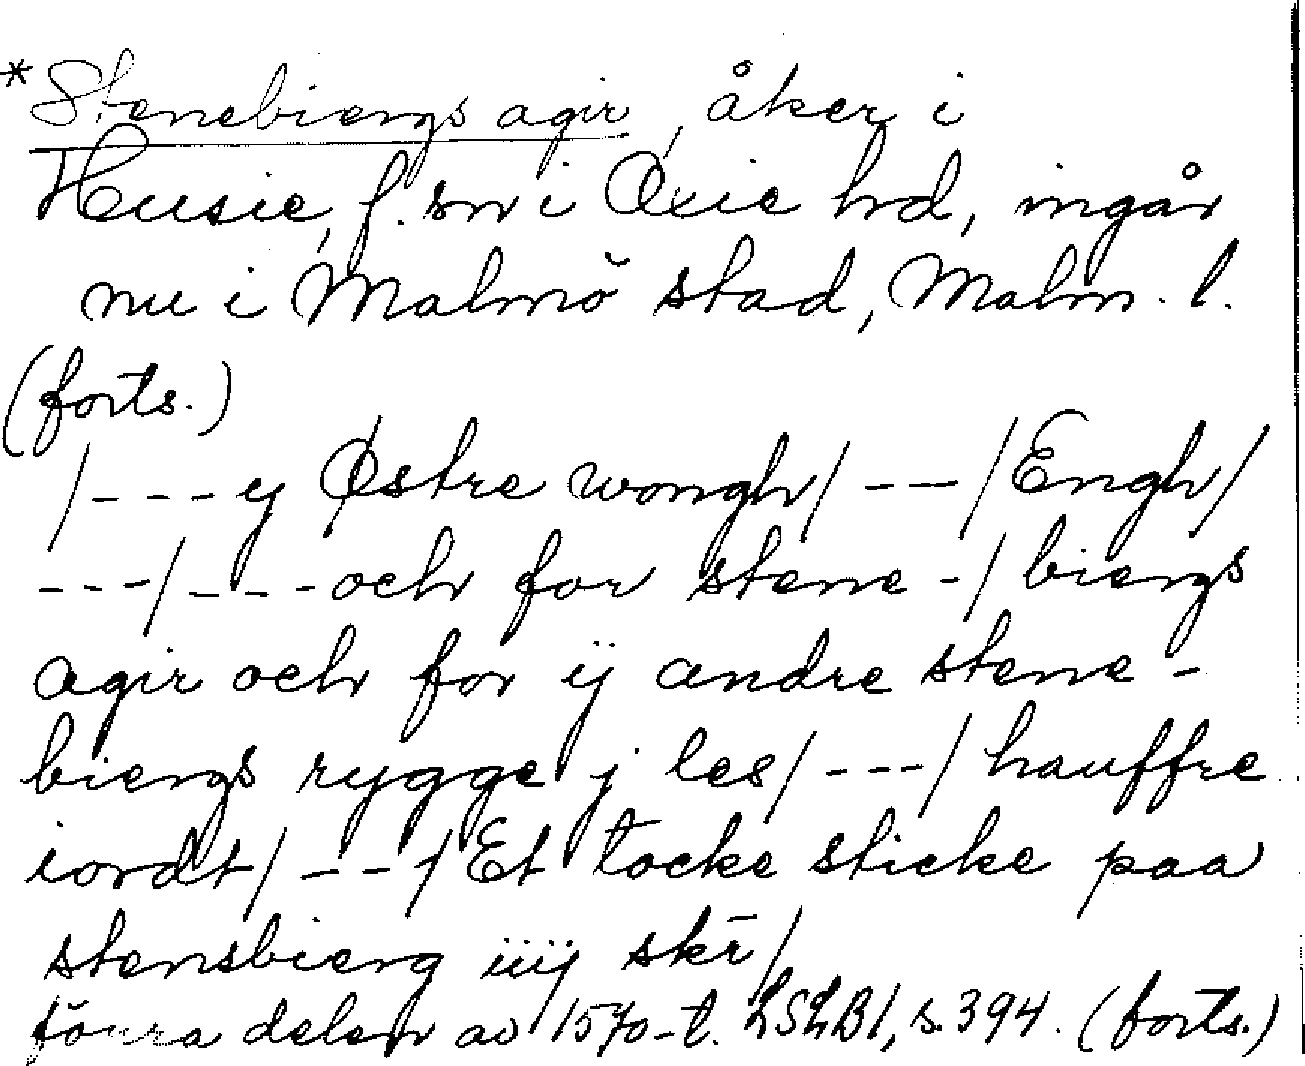 *Stenebiergs agir, åker i
Husie, f. sn i Oxie hd, ingår
nu i Malmö stad, Malm. l.
(forts.)
/---ij Østre wongh/ ---/Engh/
---/---och for stene-/biergs
agir och for ij andre stene-
biergs rygge j les/---/hauffre
iordt/---/Et tocke sticke paa
stensbierg iiij skē/
förra delen av 1570-t. LSLB1, s. 394. (forts.)